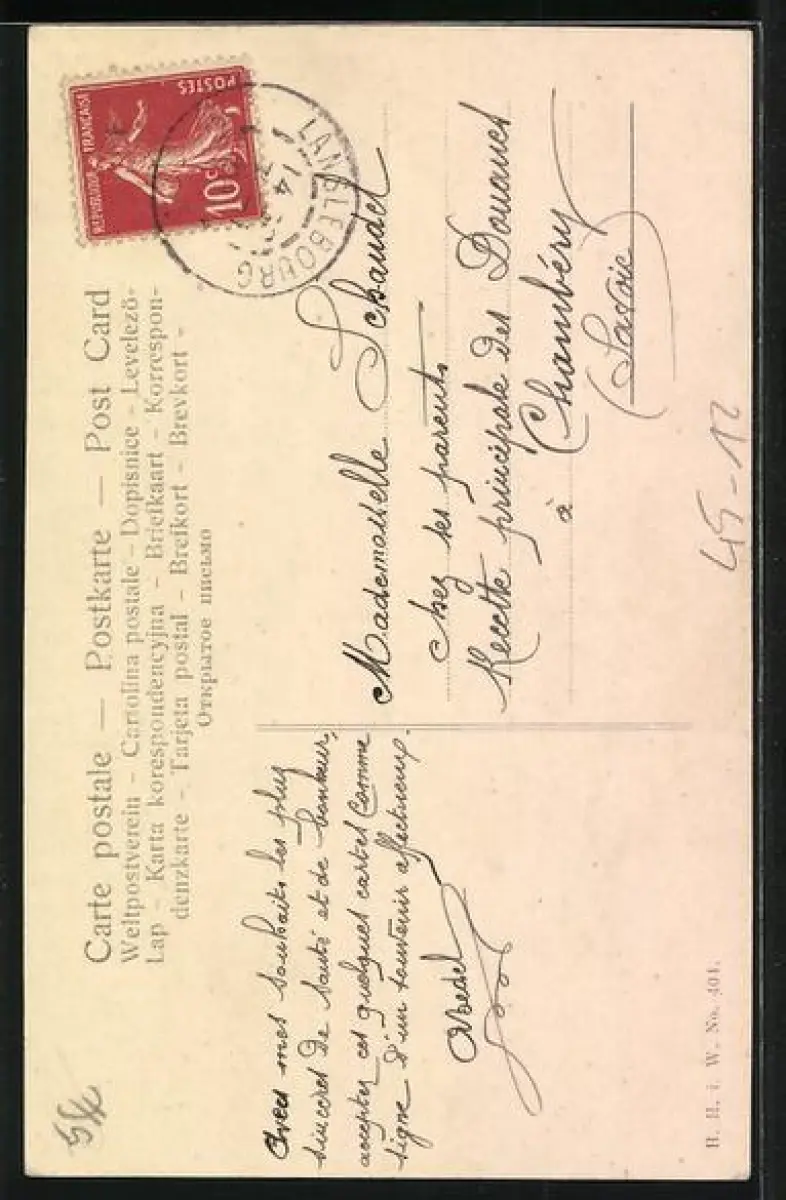 Carte postale — Postkarte — Post Card
Weltpostverein - Cartolina postale - Dopisnice - Levelezö-
Lap - Karta korespondencyjna - Briefkaart - Korrespon-
denzkarte - Tarjeta postal - Breikort - Brevkort -
Открытое письмо
POSTES
REPUBLIQUE FRANÇAISE
10c
LANSLEBOURG
14
Avec mes souhaits les plus
sincères de santé et de bonheur,
acceptez ces quelques cartes comme
signe d'un souvenir affectueux.
Mademoiselle Schaudel
chez ses parents
Recette principale des Douanes
à Chambéry
(Savoie)
45-12
B. H. i. W. No. 401.